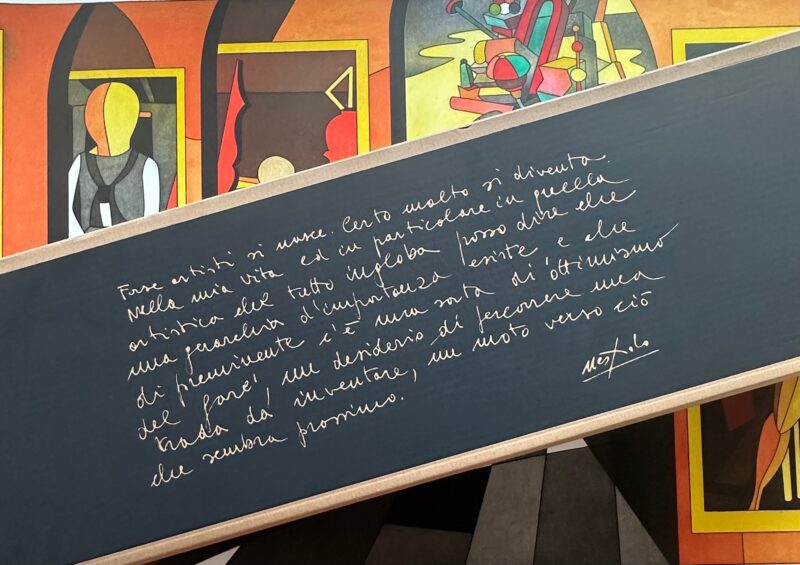 Forse artisti si nasce. Certo molto si diventa.
Nella mia vita ed in particolare in quella
artistica del tutto ingloba posso dire che
una gerarchia d'importanza esiste e che
di preminente c'è una sorta di ottimismo
del "fare", un desiderio di percorrere una
trada da inventare, un moto verso ciò
che sembra prossimo.
Nespolo